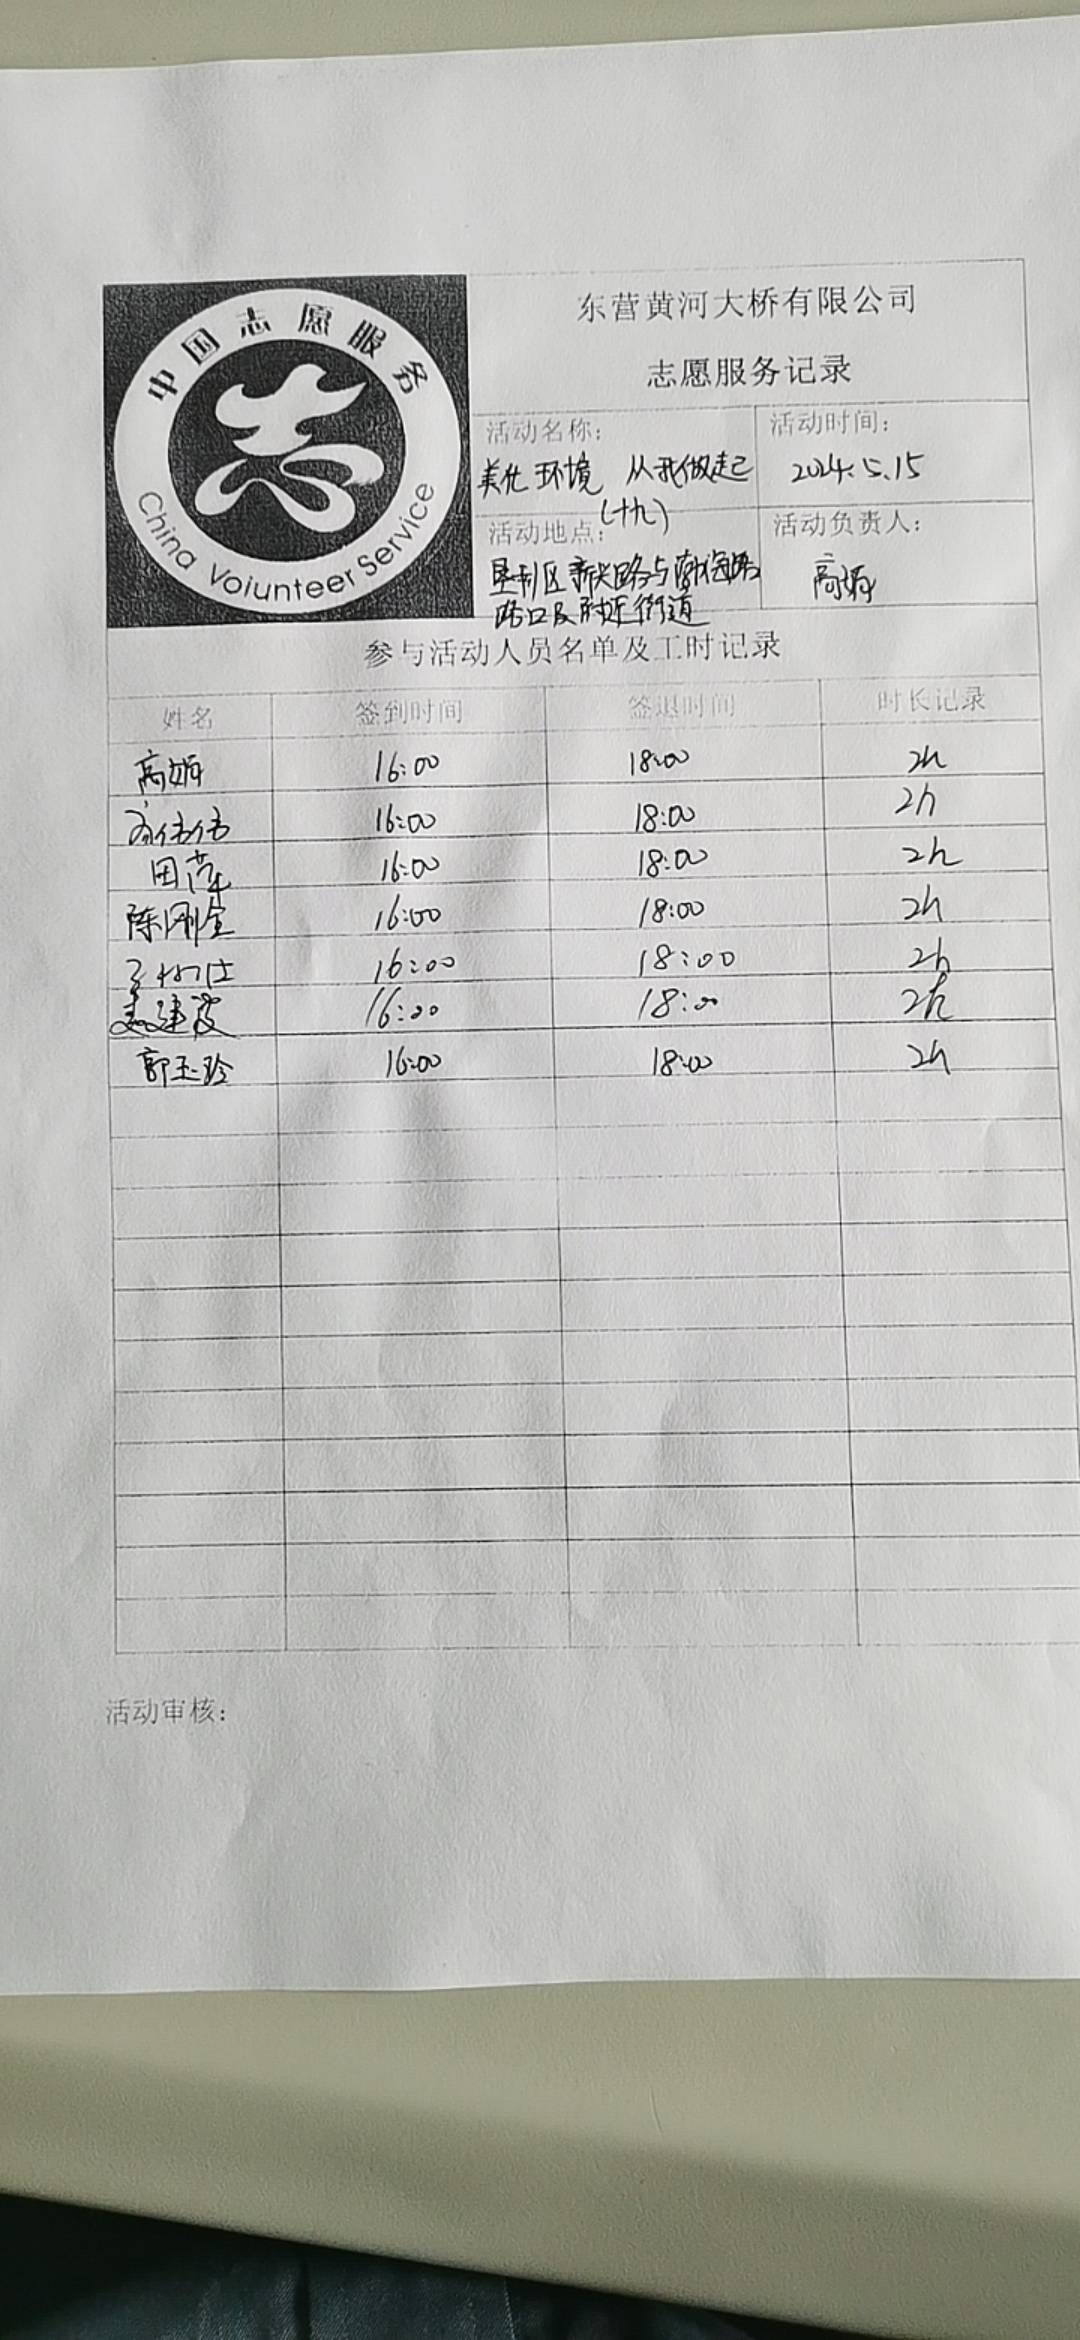 中国志愿服务
China Voiunteer Service
东营黄河大桥有限公司
志愿服务记录
活动名称:
美化环境 从我做起
(十九)
活动时间:
2024.5.15
活动地点:
垦利区新兴路与渤海路
路口及附近街道
活动负责人:
高娟
参与活动人员名单及工时记录
姓名 签到时间 签退时间 时长记录
高娟 16:00 18:00 2h
伟伟 16:00 18:00 2h
田萍 16:00 18:00 2h
陈刚全 16:00 18:00 2h
16:00 18:00 2h
建波 16:00 18:00 2h
郭玉玲 16:00 18:00 2h
活动审核: